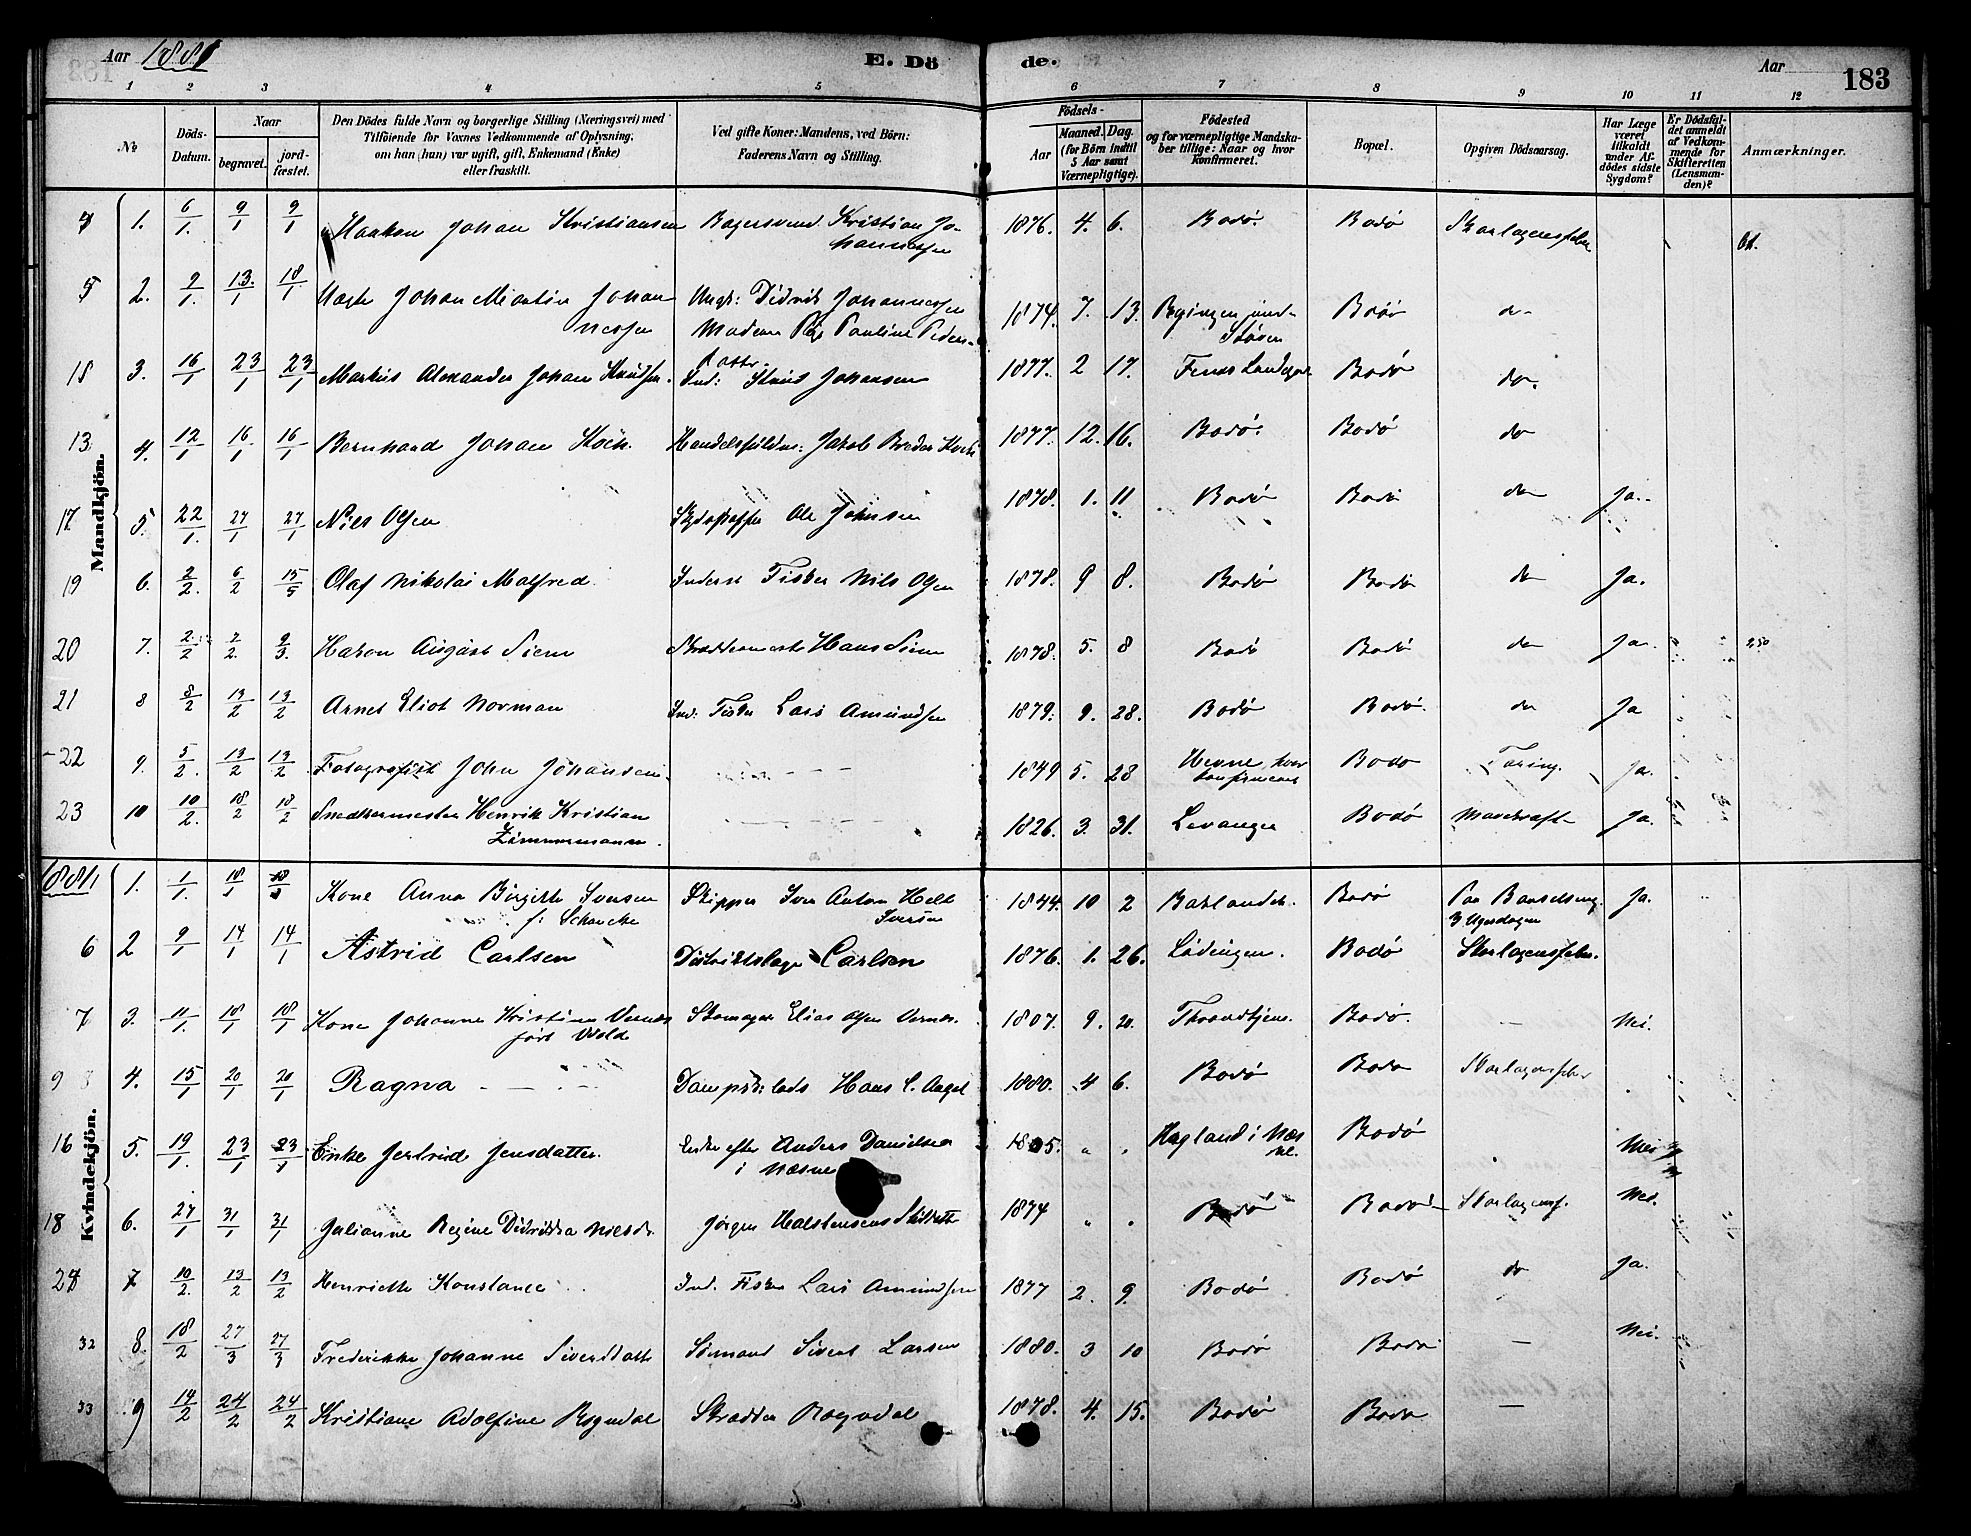 Aar 1881 E. Dö de. Aar 183
1 2 3 4 5 6 7 8 9 10 11 12
No Döds-Datum. Naar begravet. jordfæstet. Den Dödes fulde Navn og borgerlige Stilling (Næringsvei) med Tilföiende for Voxnes Vedkommende af Oplysning, om han (hun) var ugift, gift, Enkemand (Enke) eller fraskilt. Ved gifte Koner: Mandens, ved Börn: Faderens Navn og Stilling. Födsels- Aar Maaned. Dag. (for Börn indtil 5 Aar samt Værnepligtige). Födested og for værnepligtige Mandskaber tillige: Naar og hvor Konfirmeret. Bopæl. Opgiven Dödsaarsag. Har Læge været tilkaldt under Afdödes sidste Sygdom? Er Dödsfaldet anmeldt af Vedkommende for Skifteretten (Lensmanden)? Anmærkninger.
Mandkjön.
1. 6/1. 9/1 9/1 Haakon Johan Kristiansen Bagersvend Kristian Johannessen 1876. 4. 6. Bodø. Bodø Skarlagensfeber
5 2. 9/1. 13./1 18/1 Johan Martin Johannessen Ungk: Didrik Johannessen Pauline Peders- 1874. 7. 13. Bodø do
15 3. 16/1 23/1 23/1 Markus Alexander Johan Knudsen. Ind: Knud Johansen 1877. 2 17. Bodø do.
13 4. 12/1 16./1 16/1 Bernhard Johan Koch. Jakob Breder Koch 1877. 12. 16. Bodø. Bodø do
17 5. 22/1. 27/1 27/1 Nils Olsen Ole Johnsen 1878. 1. 11 Bodø Bodø do Ja.
19 6. 2/2. 6/2 15/5 Olaf Nikolai Malfred. Inderst Fisker Nils Olsen 1878. 9 8. Bodø Bodø do Ja.
20 7. 2/2 2/2. 9/3. Hakon August Siem Skræddermester Hans Siem 1878. 5. 8 Bodø Bodø do Ja.
21 8 8/2 13/2 13/2 Arnet Eliot Norman Ind: Fisker Lars Amundsen 1879. 9. 28. Bodø Bodø. do Ja
22 9. 5/2. 13/2 13/2 Fotografist John Johansen. 1849 5. 28 Hevne, hvor konfirmeret Bodø Tæring. Ja.
23 10 10/2. 18/2 18/2 Snedkermester Henrik Kristian Zimmermann. 1826. 3. 31. Levanger Bodø Ja.
1881
Kvindekjön.
1. 1/1. 18/1 18/1 Kone Anna Birgitte Iversen f: Schancke Skipper Iver Anton Helt Iversen 1844. 10 2 Bodø Paa Barselseng. 3 Ugedagen Ja.
6 2 9/1 14/1 14/1 Astrid Carlsen Distriktslæge Carlsen 1876. 1. 26. Lødingen. Bodø Skarlagensfeber.
7 3. 11/1. 18/1 18/1 Kone Johanne Kristine Vernæs født Wold Elias Olsen Vernæs. 1807. 9. 20. Throndhjem. Bodø. — Nei.
9 4. 15/1 20/1 20/1 Ragna Hans C. Angel 1880. 4 6. Bodø Bodø Skarlagensfeber
16 5. 19/1. 23/1 23/1 Enke Jertrud Jensdatter. Enke efter Anders Danielsen i Næsne 1805. Hagland i Næsne. Bodø Nei
18 6. 27/1 31/1 31/1 Julianne Regine Didrikka Nilsdr. Jørgen Halstensens 1874 Bodø Bodø Skarlagensf. Nei.
24 7 10/2. 13/2 13/2 Henriette Konstance Ind. Fisker Lars Amundsen 1877 2. 9. Bodø Bodø do Ja.
32 8. 18/2 27/3 27/3 Frederikke Johanne Sivertdatter Sømand Sivert Larsen 1880. 3 10 Bodø Bodø — Nei.
33 9 14/2 24/2 24/2 Kristiane Adolfine Rogndal Skrædder Rogndal 1878. 4. 15. Bodø Bodø —